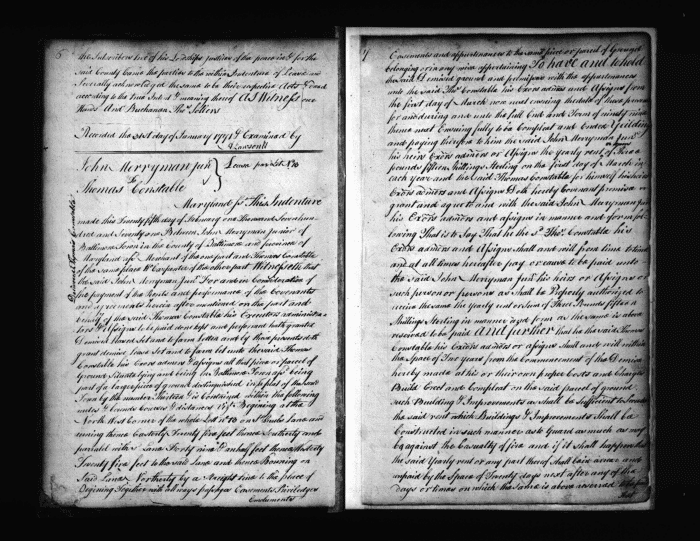 6
the Subscribers two of his Lordships justices of the peace in & for the
said County Came the parties to the within Indenture of Lease and
Severally acknowledged the same to be their respective Acts & deed
according to the true Intent & meaning thereof As Witness our
Hands And Buchanan Thos Sollers
Recorded the 31st day of January 1771 & Examined by
A Lawson Clk
John Merryman Junr
To
Thomas Constable
Lease par Lot No 10
Maryland ss This Indenture
made this Twenty fifth day of February one Thousand Seven hun
dred and Seventy one Between John Merryman Junior of
Baltimore Town in the County of Baltimore and province of
Maryland Merchant of the one part and Thomas Constable
of the same place Carpenter of the other part Witnesseth that
the said John Merryman Junr For and in Consideration of
the payment of the Rents and performance of the Covenants
and agreements herein after mentioned on the part and
behalf of the said Thomas Constable his Executors administra
tors & Assigns to be paid done kept and performed hath granted
Demised leased Set and to farm letten and by these presents doth
grant demise lease Set and to farm let unto the said Thomas
Constable his Exors admrs & assigns all that piece or parcel of
Ground Situate lying and being in Baltimore Town afsd being
part of a large piece of ground distinguished in a plat of the said
Town by the number Contained within the following
metes & bounds Courses & distances Vizt Begining at the
North West Corner of the whole Lott No 10 on Lane and
runing thence Easterly Twenty five feet thence Southerly and
parralel with Lane Forty nine & an half feet thence Westerly
Twenty five feet to the said Lane and thence Bounding on
Said Lane Northerly by a streight line to the place of
Begining Together with all ways passages Easements Priviledges
7
Easements and appurtenances to the said piece or parcel of Ground
belonging or in any wise appertaining To have and to hold
the said Demised ground and premisses with the appurtenances
unto the said Thos Constable his Exors admrs and Assigns from
the first day of March now next ensuing the date of these presents
for and during and unto the full End and Term of ninety nine
years next Ensuing fully to be Compleat and Ended Yeilding
and paying therefor to him the said John Merryman Junr
his heirs Exors admrs or Assigns the yearly rent of Three
pounds fifteen Shillings Sterling on the first day of March in
each year and the said Thomas Constable for himself his heirs
Exors admrs and Assigns Doth hereby Covenant promise
grant and agree to and with the said John Merryman Junr
his Exors admrs and assigns in manner and form fol
lowing That is to Say That he the sd Thos Constable his
Exors admrs and Assigns shall and will from time to time
and at all times hereafter pay or cause to be paid unto
the said John Merryman Junr his heirs or Assigns or
such person or persons as shall be Properly authorized to
receive the same the yearly rent or Sum of Three Pounds fifteen
Shillings Sterling in manner and form as the same is above
reserved to be paid And further that he the said Thomas
Constable his Exors admrs or assigns shall and will within
the Space of Two years from the Commencement of the Demise
hereby made at his or their own proper Costs and Charges
Build Erect and Compleat on the said parcel of ground
such Building & Improvements as shall be Sufficient to Secure
the said rent which Buildings & Improvements Shall be
Constructed in such manner as to guard as much as may
be against the Casualty of fire and if it shall happen that
the said Yearly rent or any part thereof shall be in arrear and
unpaid by the Space of Twenty days next after any of the
days or times on which the same is above reserved to be paid